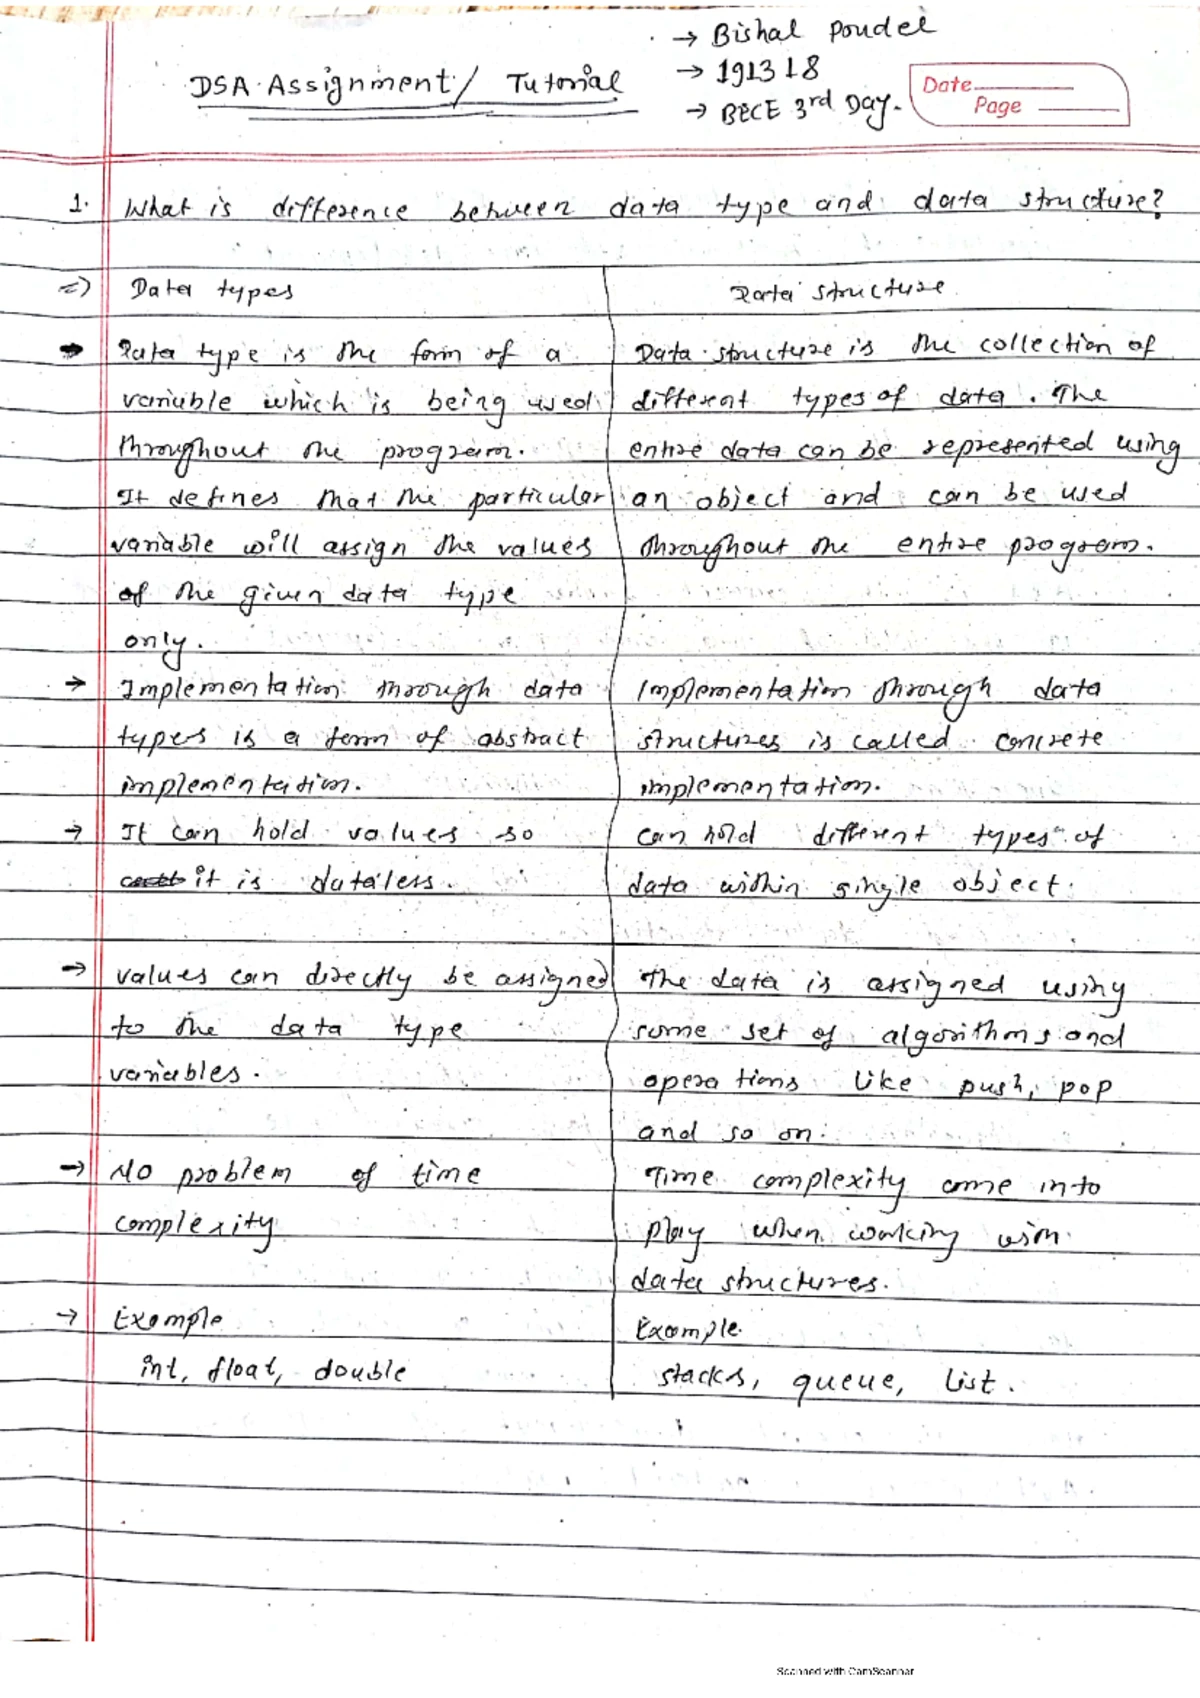 → Bishal Poudel
DSA Assignment / Tutorial
→ 191318
→ BECE 3rd Day.
Date
Page
1. What is difference between data type and data structure?
=> Data types
Data type is the form of a
variable which is being used
throughout the program.
It defines that the particular
variable will assign the values
of the given data type
only.
→ Implementation through data
types is a form of abstract
implementation.
→ It can hold values so
it is dataless.
→ values can directly be assigned
to the data type
variables.
→ No problem of time
complexity
→ Example
int, float, double
Data structure
Data structure is the collection of
different types of data. The
entire data can be represented using
an object and can be used
throughout the entire program.
Implementation through data
structures is called concrete
implementation.
can hold different types of
data within single object.
The data is assigned using
some set of algorithms and
operations like push, pop
and so on.
Time complexity come into
play when working with
data structures.
Example
stacks, queue, list.
Scanned with CamScanner